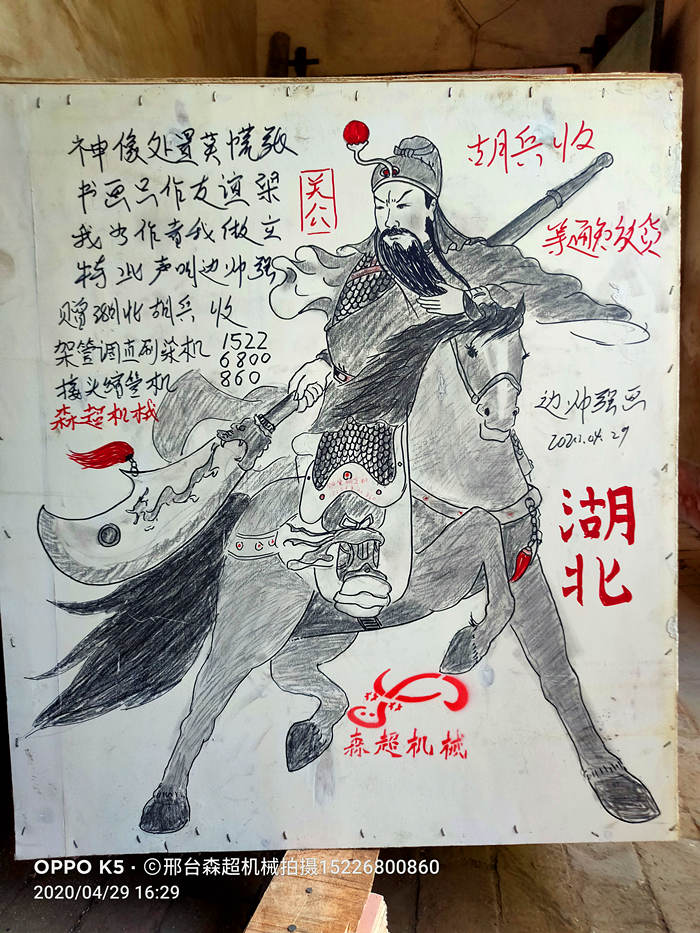 神像处置莫慌张
书画只作友谊梁
我为作者我做主
特此声明边帅强
赠湖北胡兵收
架管调直刷漆机 1522
6800
接头缩管机 860
森超机械
关公
胡兵收
等通知放货
边帅强画
2020.04.29
湖北
森超机械
OPPO K5 · ©邢台森超机械拍摄15226800860
2020/04/29 16:29